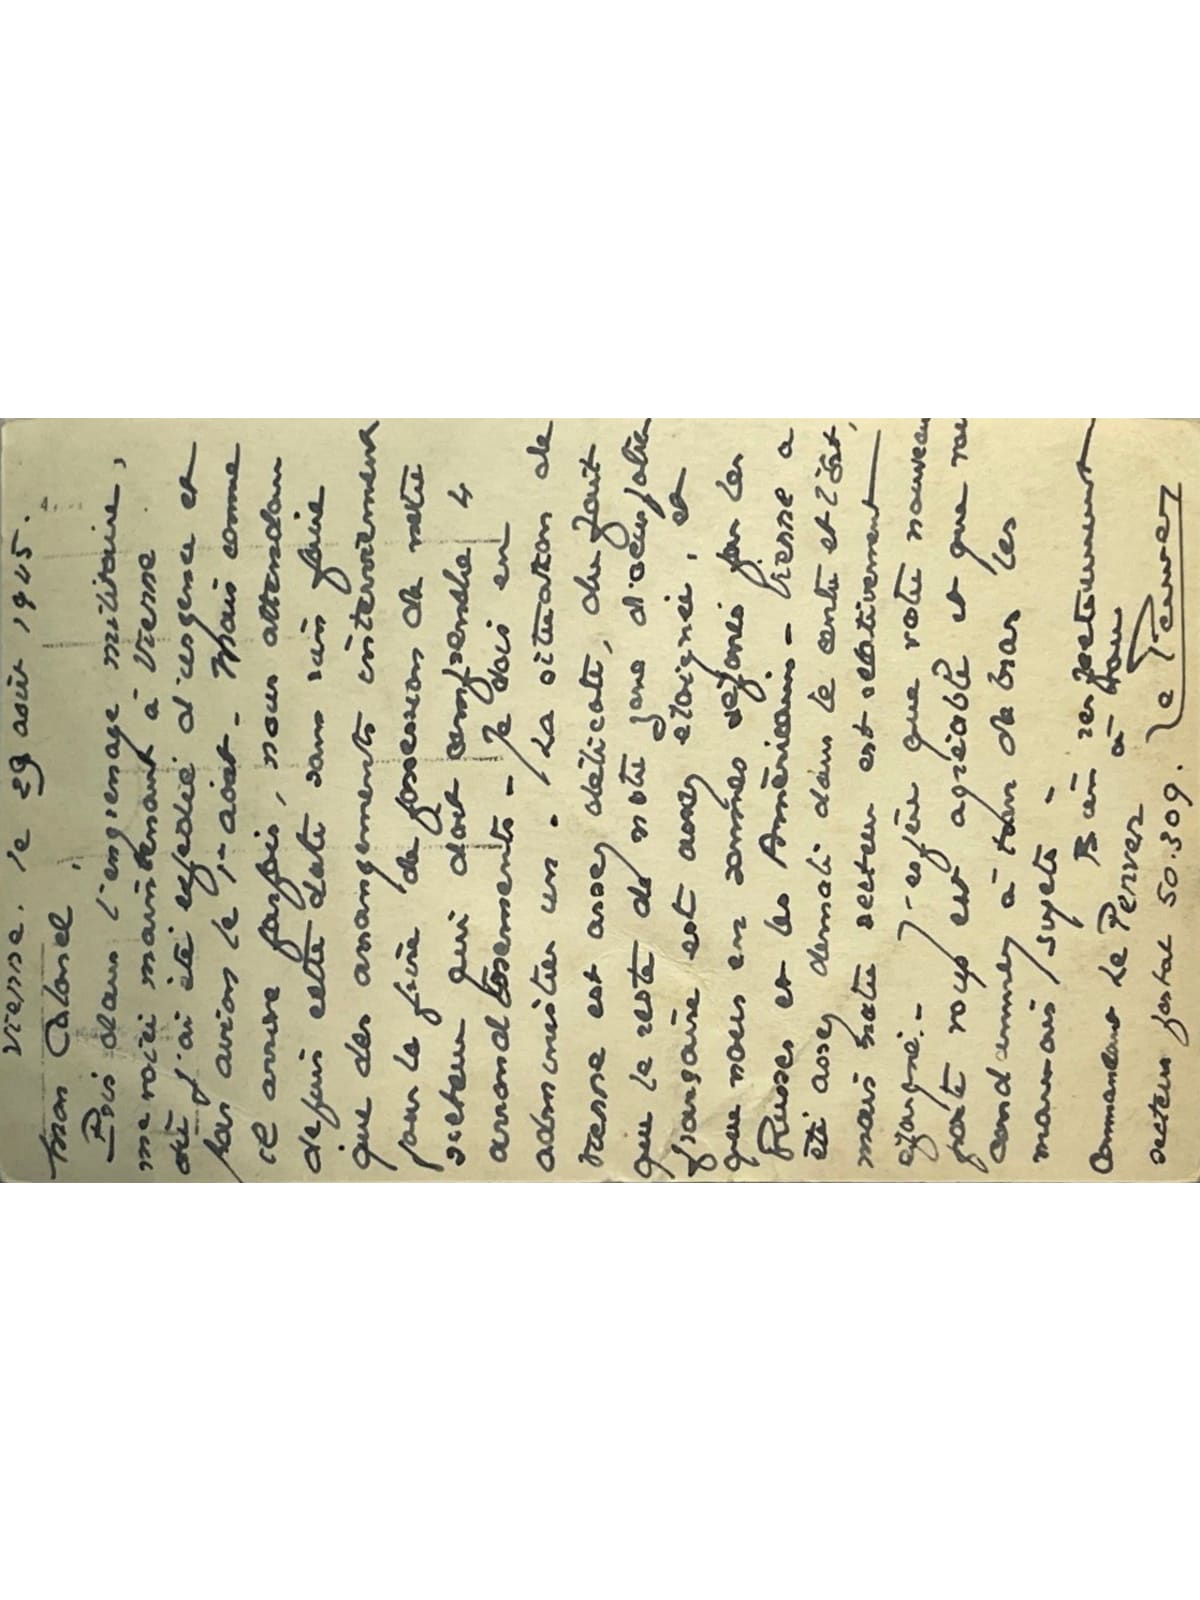 Vienne. le 29 août 1945.
Mon Colonel,
Pris dans l'engrenage militaire,
me voici maintenant à Vienne
où j'ai été expédié d'urgence et
par avion le 1er août - Mais comme
il arrive parfois, nous attendons
depuis cette date sans rien faire
que des arrangements interviennent
pour la prise de possession de notre
secteur qui doit comprendre 4
arrondissements - Je dois en
administrer un. La situation de
Vienne est assez délicate, du fait
que le reste de notre zone d'occupation
française est assez éloignée, et
que nous en sommes séparés par les
Russes et les Américains - Vienne a
été assez démoli dans le centre et l'est,
mais notre secteur est relativement
épargné. - J'espère que votre nouveau
poste vous est agréable et que vous
condamnez à tour de bras les
mauvais sujets -
Bien respectueusement
à vous
Commandant Le Penven
secteur postal 50.309. Le Penven